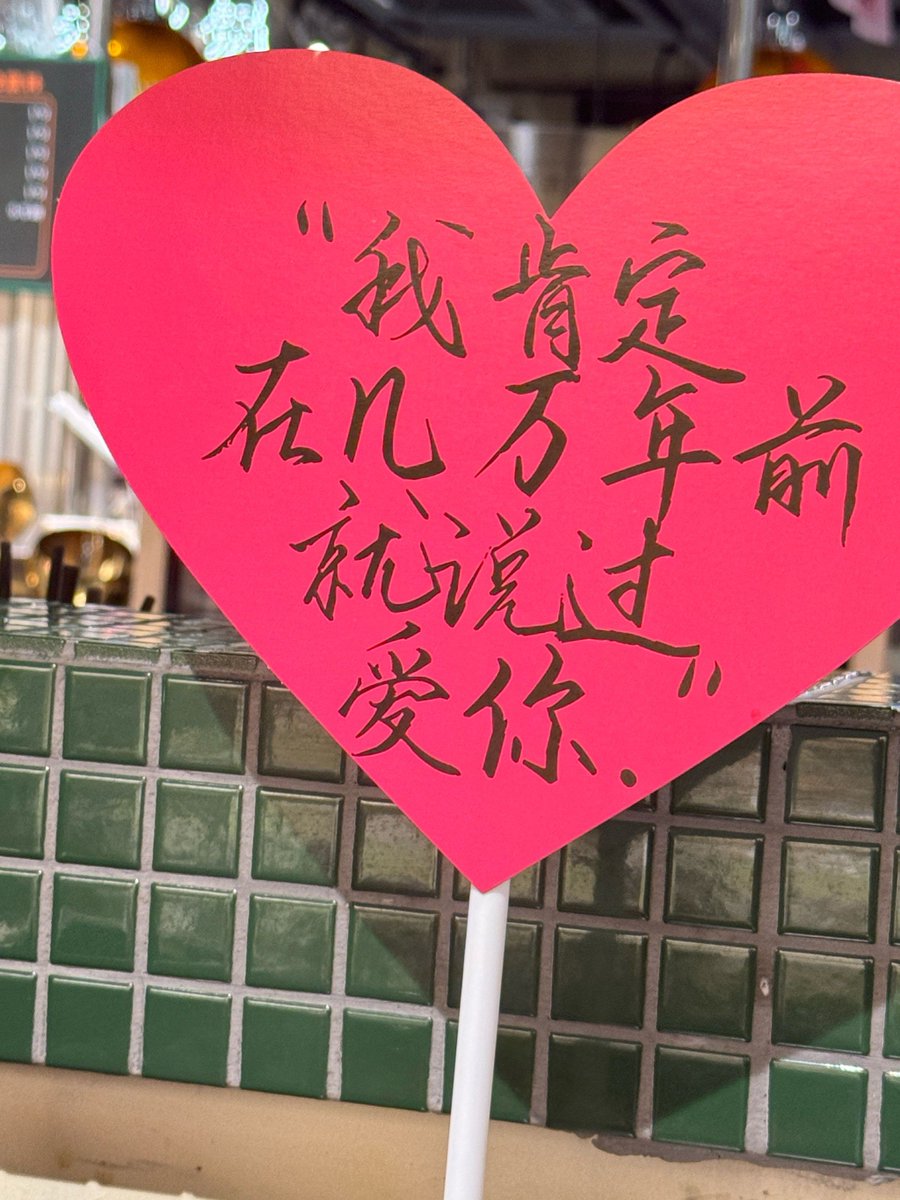 “我肯定
在几万年前
就说过
爱你.”